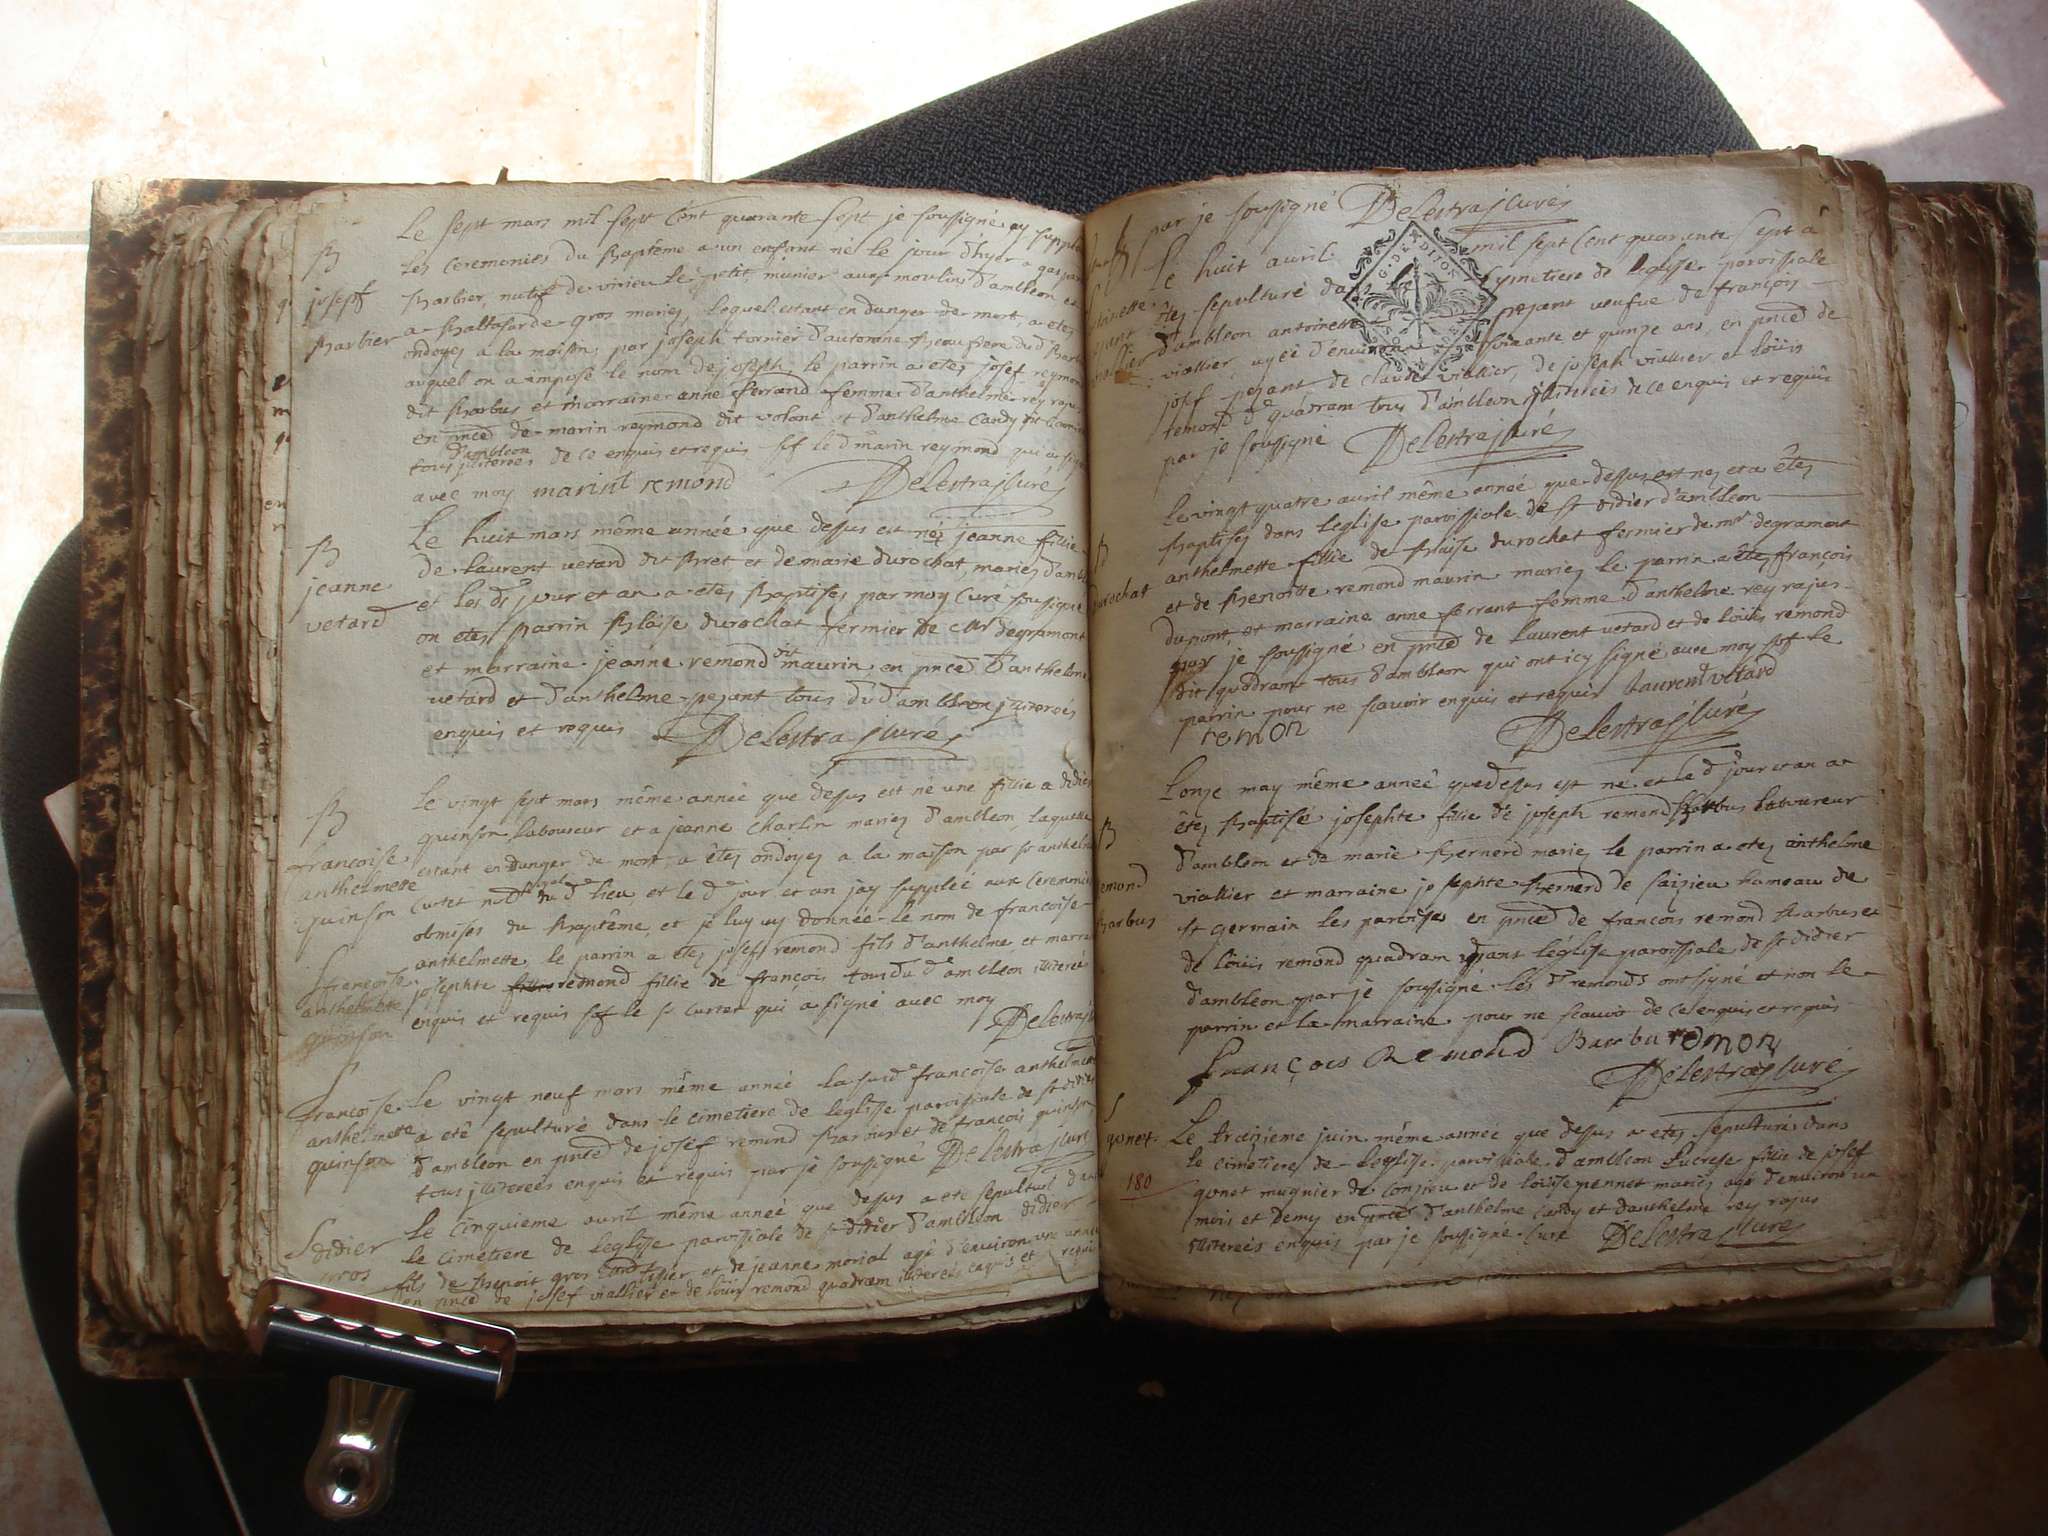 Le sept mars mil sept Cent quarante sept je soussigné ay
les ceremonies du Baptême a un enfant né le jour d'hyer a
B
joseph
Barbier
Barbier, natif de virieu le petit, munier aux moulins d'ambleon et
a Baltasarde gros mariez, lequel estant en danger de mort, a etez
ondoyez a la maison, par joseph tornier d'autonne Beaufrere dud
auquel on a imposé le nom de joseph, le parrin a etez josef reymon
dit Barbus et marraine anne ferrand femme d'anthelme rey
en pnce de marin reymond dit volant et d'anthelme Cardy dit
d'ambleon
tous de ce enquis et requis sof le d marin reymond qui a
avec moy marint remond Delestraz Curé
B
jeanne
vetard
Le huit mars même année que dessus est néz jeanne fillie
de Laurent vetard dit Bret et de marie durochat, mariez
et les ds jour et an a etez Baptisez par moy Curé soussigné
on etez Parrin Blaise durochat fermier de Mr degramont
et marraine jeanne remond dit maurin en pnce d'anthelme
vetard et d'anthelme pezant tous dud ambleon
enquis et requis Delestraz Curé
B
francoise
anthelmette
quinson
Le vingt sept mars même année que dessus est né une fillie a didier
quinson Laboureur et a jeanne Charlin mariez d'ambleon, laquelle
estant en danger de mort a êtez ondoyez a la maison par sr
Curtet dud lieu, et le d jour et an jay supplée aux
obmises du Baptême, et je luy ay donnée le nom de francoise
anthelmette, le parrin a etez josefs remond fils d'anthelme et
josephte remond fillie de françois tous du d ambleon illiterés
enquis et requis sof le sr Curtet qui a signé avec moy Delestraz
S francoise
anthelmette
quinson
S
francoise
anthelmette
quinson
Le vingt neuf mars même année la susd francoise
a eté sepulturé dans le cimetiere de leglise paroissiale de st didier
d'ambleon en pnce de josef remond Barbus et de françois quinson
tous illiterées enquis et requis par je soussigné Delestraz Curé
S didier
gros
Le Cinquieme avril même année que dessus a eté sepulturé
le cimetiere de leglise paroissiale de st didier d'ambleon didier
fils de Benoit gros et de jeanne morial agé d'environ
en pnce de josef viallier et de loüis remond quadram illiterés enquis et
par je soussigné Delestraz Curé
Le huit avril mil sept Cent quarante sept a
G. DE DIJON
sepulturé cymetiere de Leglise paroissiale
d'ambleon antoinette pezant veufve de françois
viallier, agée d'environ soixante et quinze ans, en pnce de
josef pezant de claude viallier, de joseph viallier et loüis
remond d quadram tous d'ambleon illiterés de ce enquis et requis
par je soussigné Delestraz Curé
Le vingt quatre avril même année que dessus est nez et a êtez
Baptisez dans leglise paroissiale de st didier d'ambleon
B
durochat
anthelmette fillie de Blaise durochat fermier de mr degramont
et de Benoitte remond maurin mariez le parrin a êtez françois
dupont, et marraine anne ferrant femme d'anthelme rey rajus
par je soussigné en pnce de laurent vetard et de loüis remond
dit quadram tous d'ambleon qui ont icy signé avec moy sof le
parrin pour ne scavoir enquis et requis Laurent vetard
remon Delestraz Curé
Lonze may même année que dessus est né et le d jour et an a
êtez Baptisé josephte fillie de joseph remond Barbus laboureur
B
remond
Barbus
d'ambleon et de marie Bernerd mariez le parrin a etez anthelme
viallier et marraine josephte Bernerd de saizieu hameau de
st germain les paroisses en pnce de francois remond Barbus et
de loüis remond quadram dans leglise paroissiale de st didier
d'ambleon par je soussigné les ds remonds ont signé et non le
parrin et la marraine pour ne scavoir de ce enquis et requis
françois Remond Barbu remon
Delestraz Curé
S
gonet
180
Le treizieme juin même année que dessus a etez sepulturé dans
le cimetiere de leglise paroissiale d'ambleon Lucresse fillie de josef
gonet mugnier de Conzieu et de loüise pennet mariez agé d'environ un
mois et demy en pnce d'anthelme Cardy et d'anthelme rey rajus
illiterées enquis par je soussigné Curé Delestraz Curé